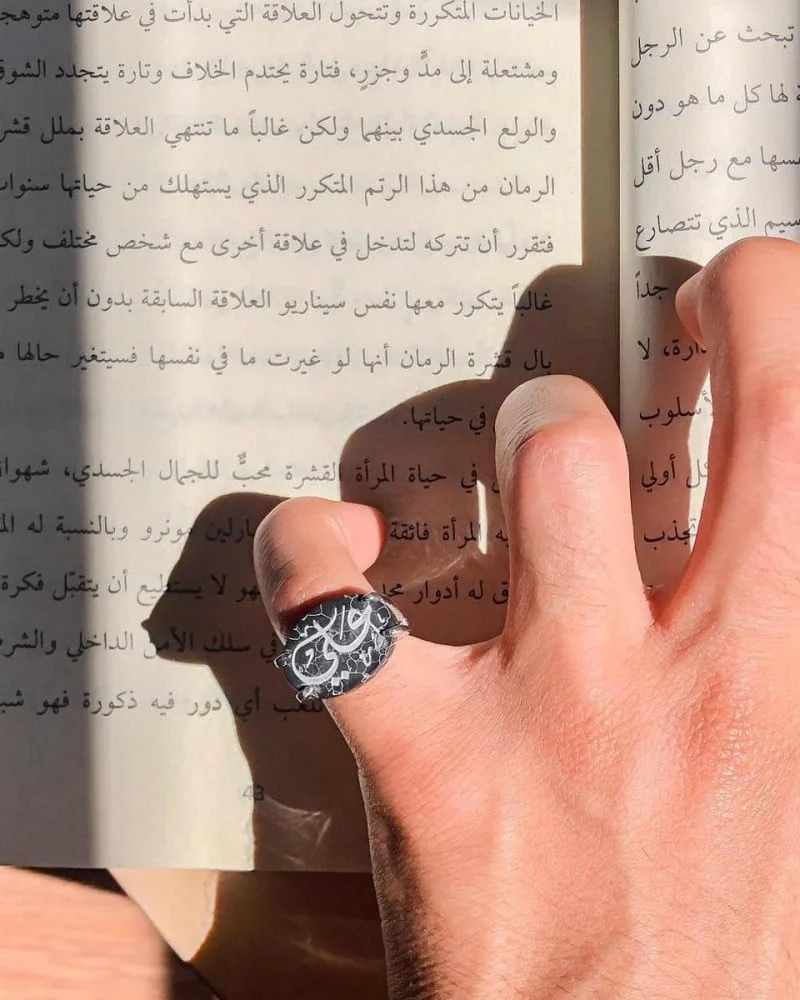 تبحث عن الرجل
لها كل ما هو دون
نفسها مع رجل أقل
الذي تتصارع
جداً
لا
أسلوب
أولي
تجذب
الخيانات المتكررة وتتحول العلاقة التي بدأت في علاقتها
ومشتعلة إلى مدٍّ وجزرٍ، فتارة يحتدم الخلاف وتارة يتجدد الشوق
والولع الجسدي بينهما ولكن غالباً ما تنتهي العلاقة بملل
الرمان من هذا الرتم المتكرر الذي يستهلك من حياتها
فتقرر أن تتركه لتدخل في علاقة أخرى مع شخص مختلف
غالباً يتكرر معها نفس سيناريو العلاقة السابقة بدون أن يخطر
بال قشرة الرمان أنها لو غيرت ما في نفسها فسيتغير حالها
في حياتها.
في حياة المرأة القشرة محبٌّ للجمال الجسدي،
المرأة فائقة مونرو وبالنسبة له
له أدوار فهو لا يستطيع أن يتقبّل فكرة
في سلك الأمن الداخلي
أي دور فيه ذكورة فهو
43
علي